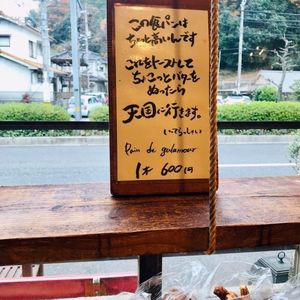 この食パンは
ちょっと高いんです
これをトーストして
ちょこっとバターを
ぬったら
天国に行きます。
いってらっしゃい
Pain de gulamour
1本 600円